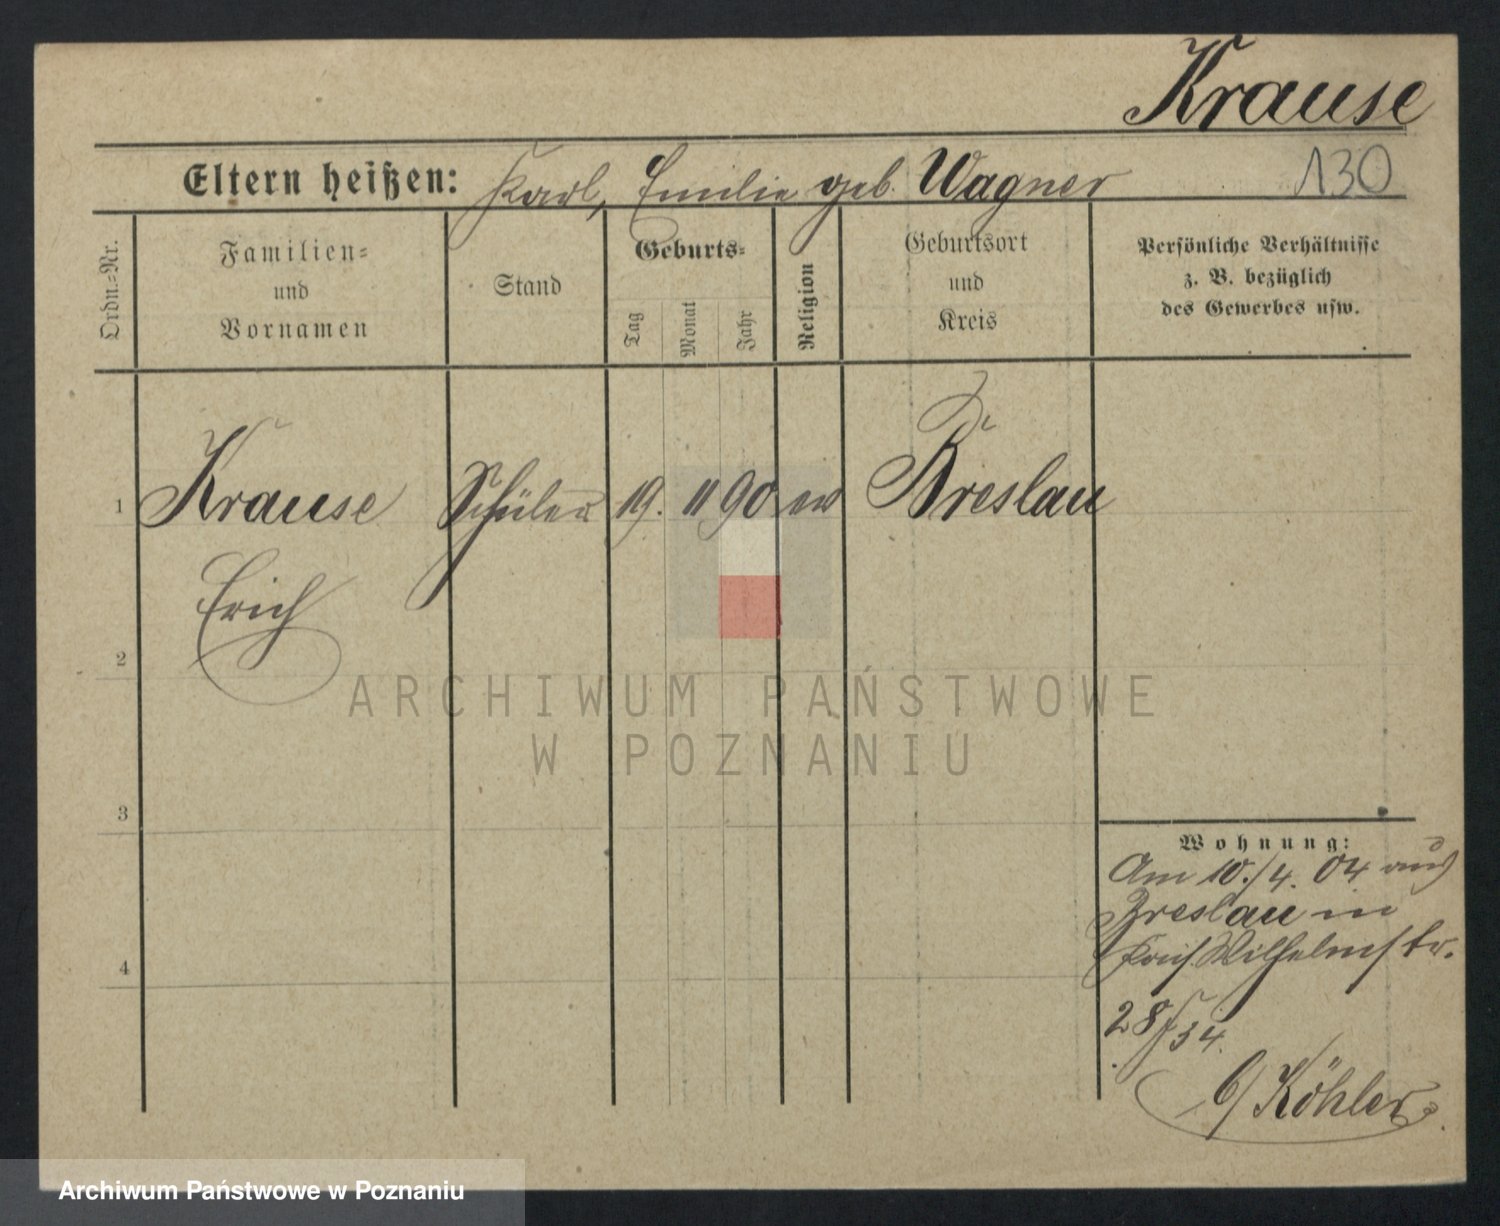 Krause
130
Eltern heißen: Karl, Emilie geb. Wagner
Ordn.-Nr.
Familien-
und
Vornamen
Stand
Geburts-
Tag
Monat
Jahr
Religion
Geburtsort
und
Kreis
Persönliche Verhältnisse
z. B. bezüglich
des Gewerbes usw.
1 Krause Schüler 19. 11 90 ev Breslau
Erich
2
3
4
ARCHIWUM PAŃSTWOWE
W POZNANIU
Wohnung:
Am 10./4. 04 aus
Breslau in
Wilhelmstr.
28/34.
b/ Köhler
Archiwum Państwowe w Poznaniu